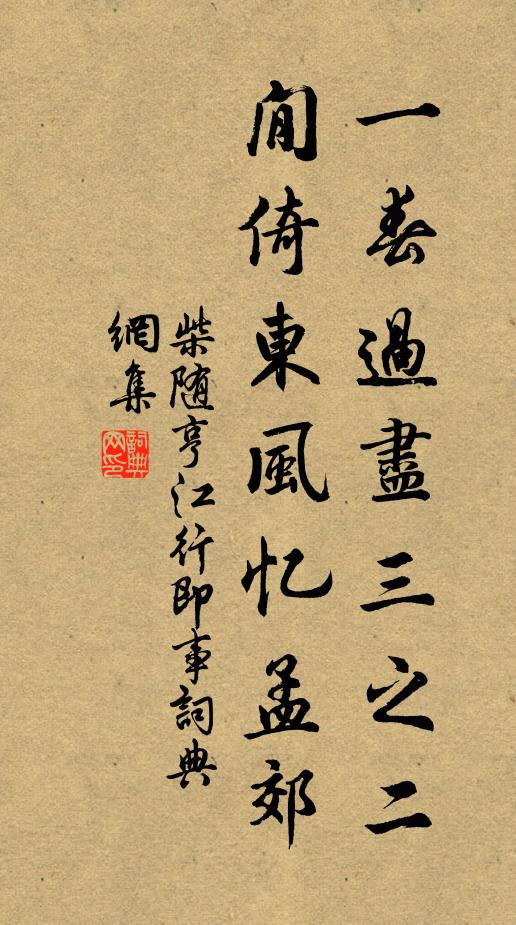 一春過盡三之二
闲倚東風忆孟郊
柴随亨江行即事詞典
網集
詞典網印